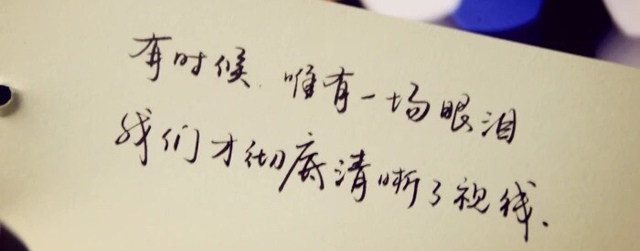 有时候 唯有一场眼泪
我们才彻底清晰了视线.